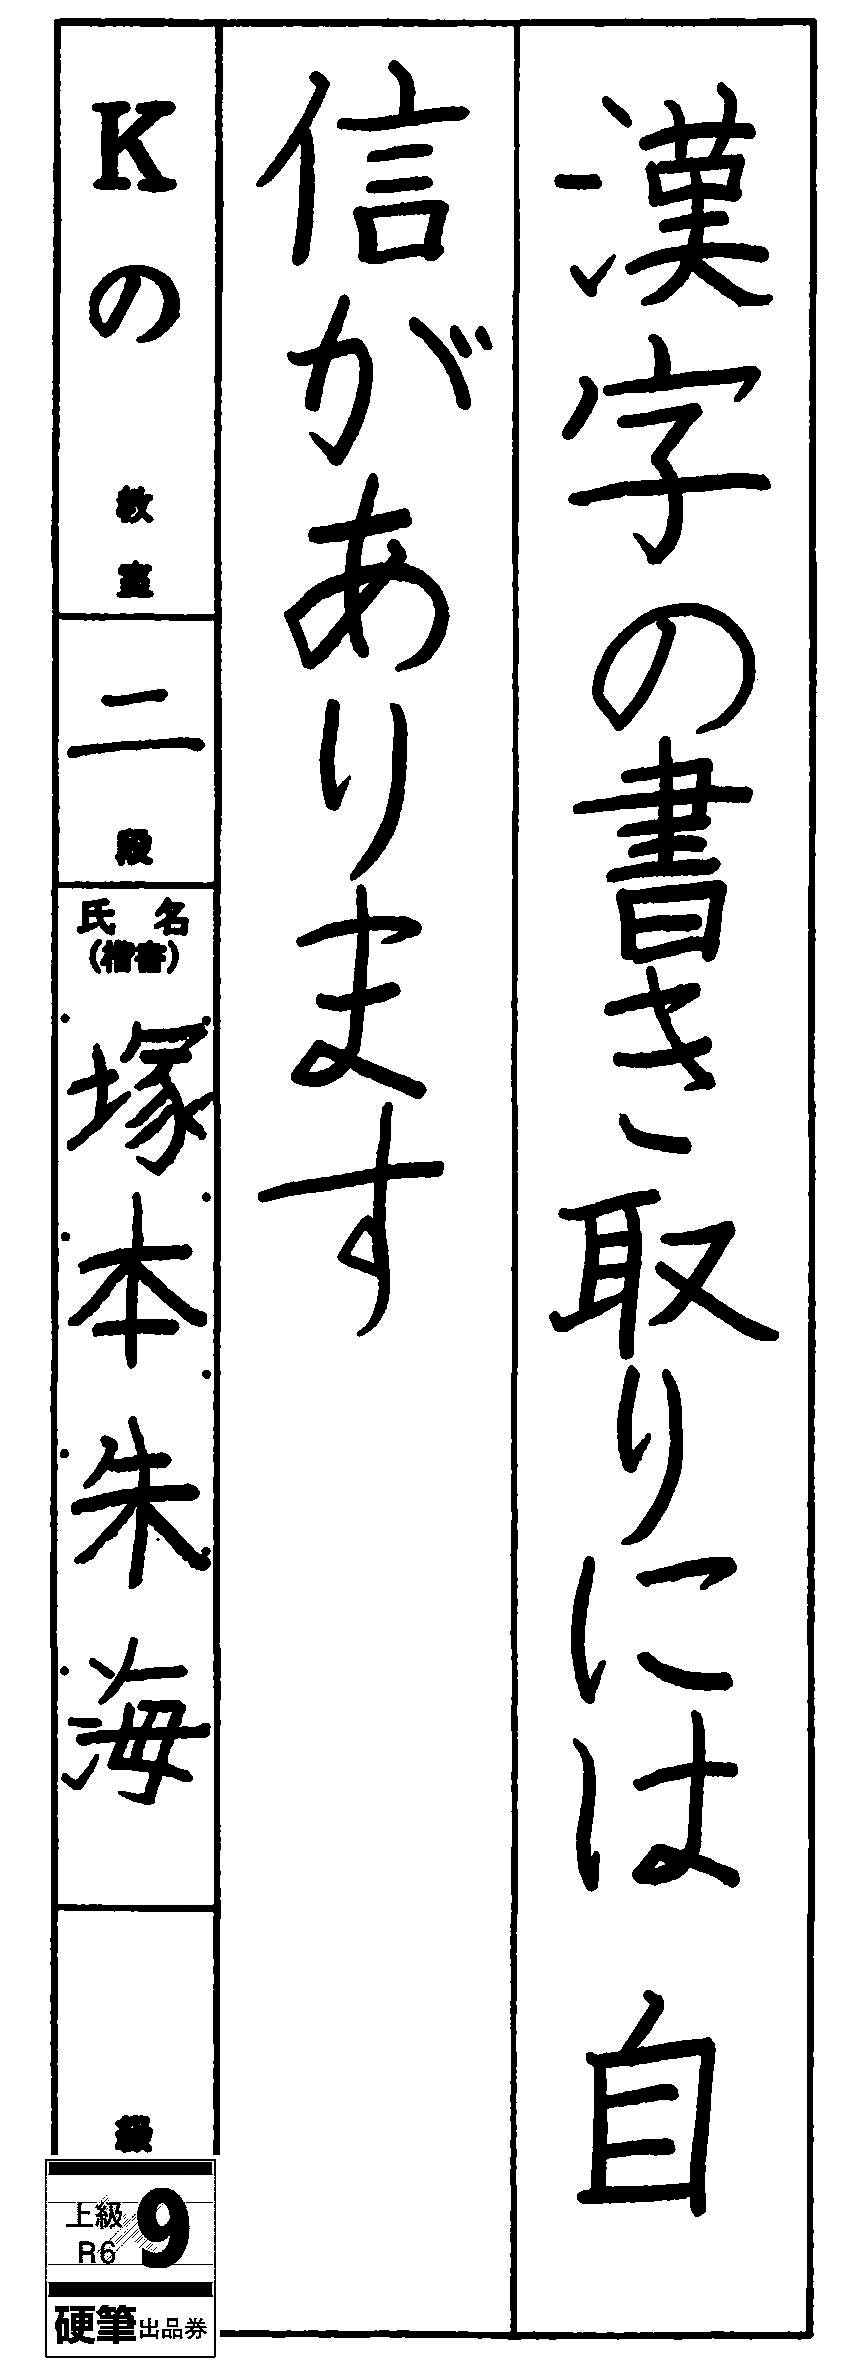 漢字の書き取りには自
信があります
Kの教室
二段
氏名
(楷書)
塚本朱海
級
上級
R6
9
硬筆出品券